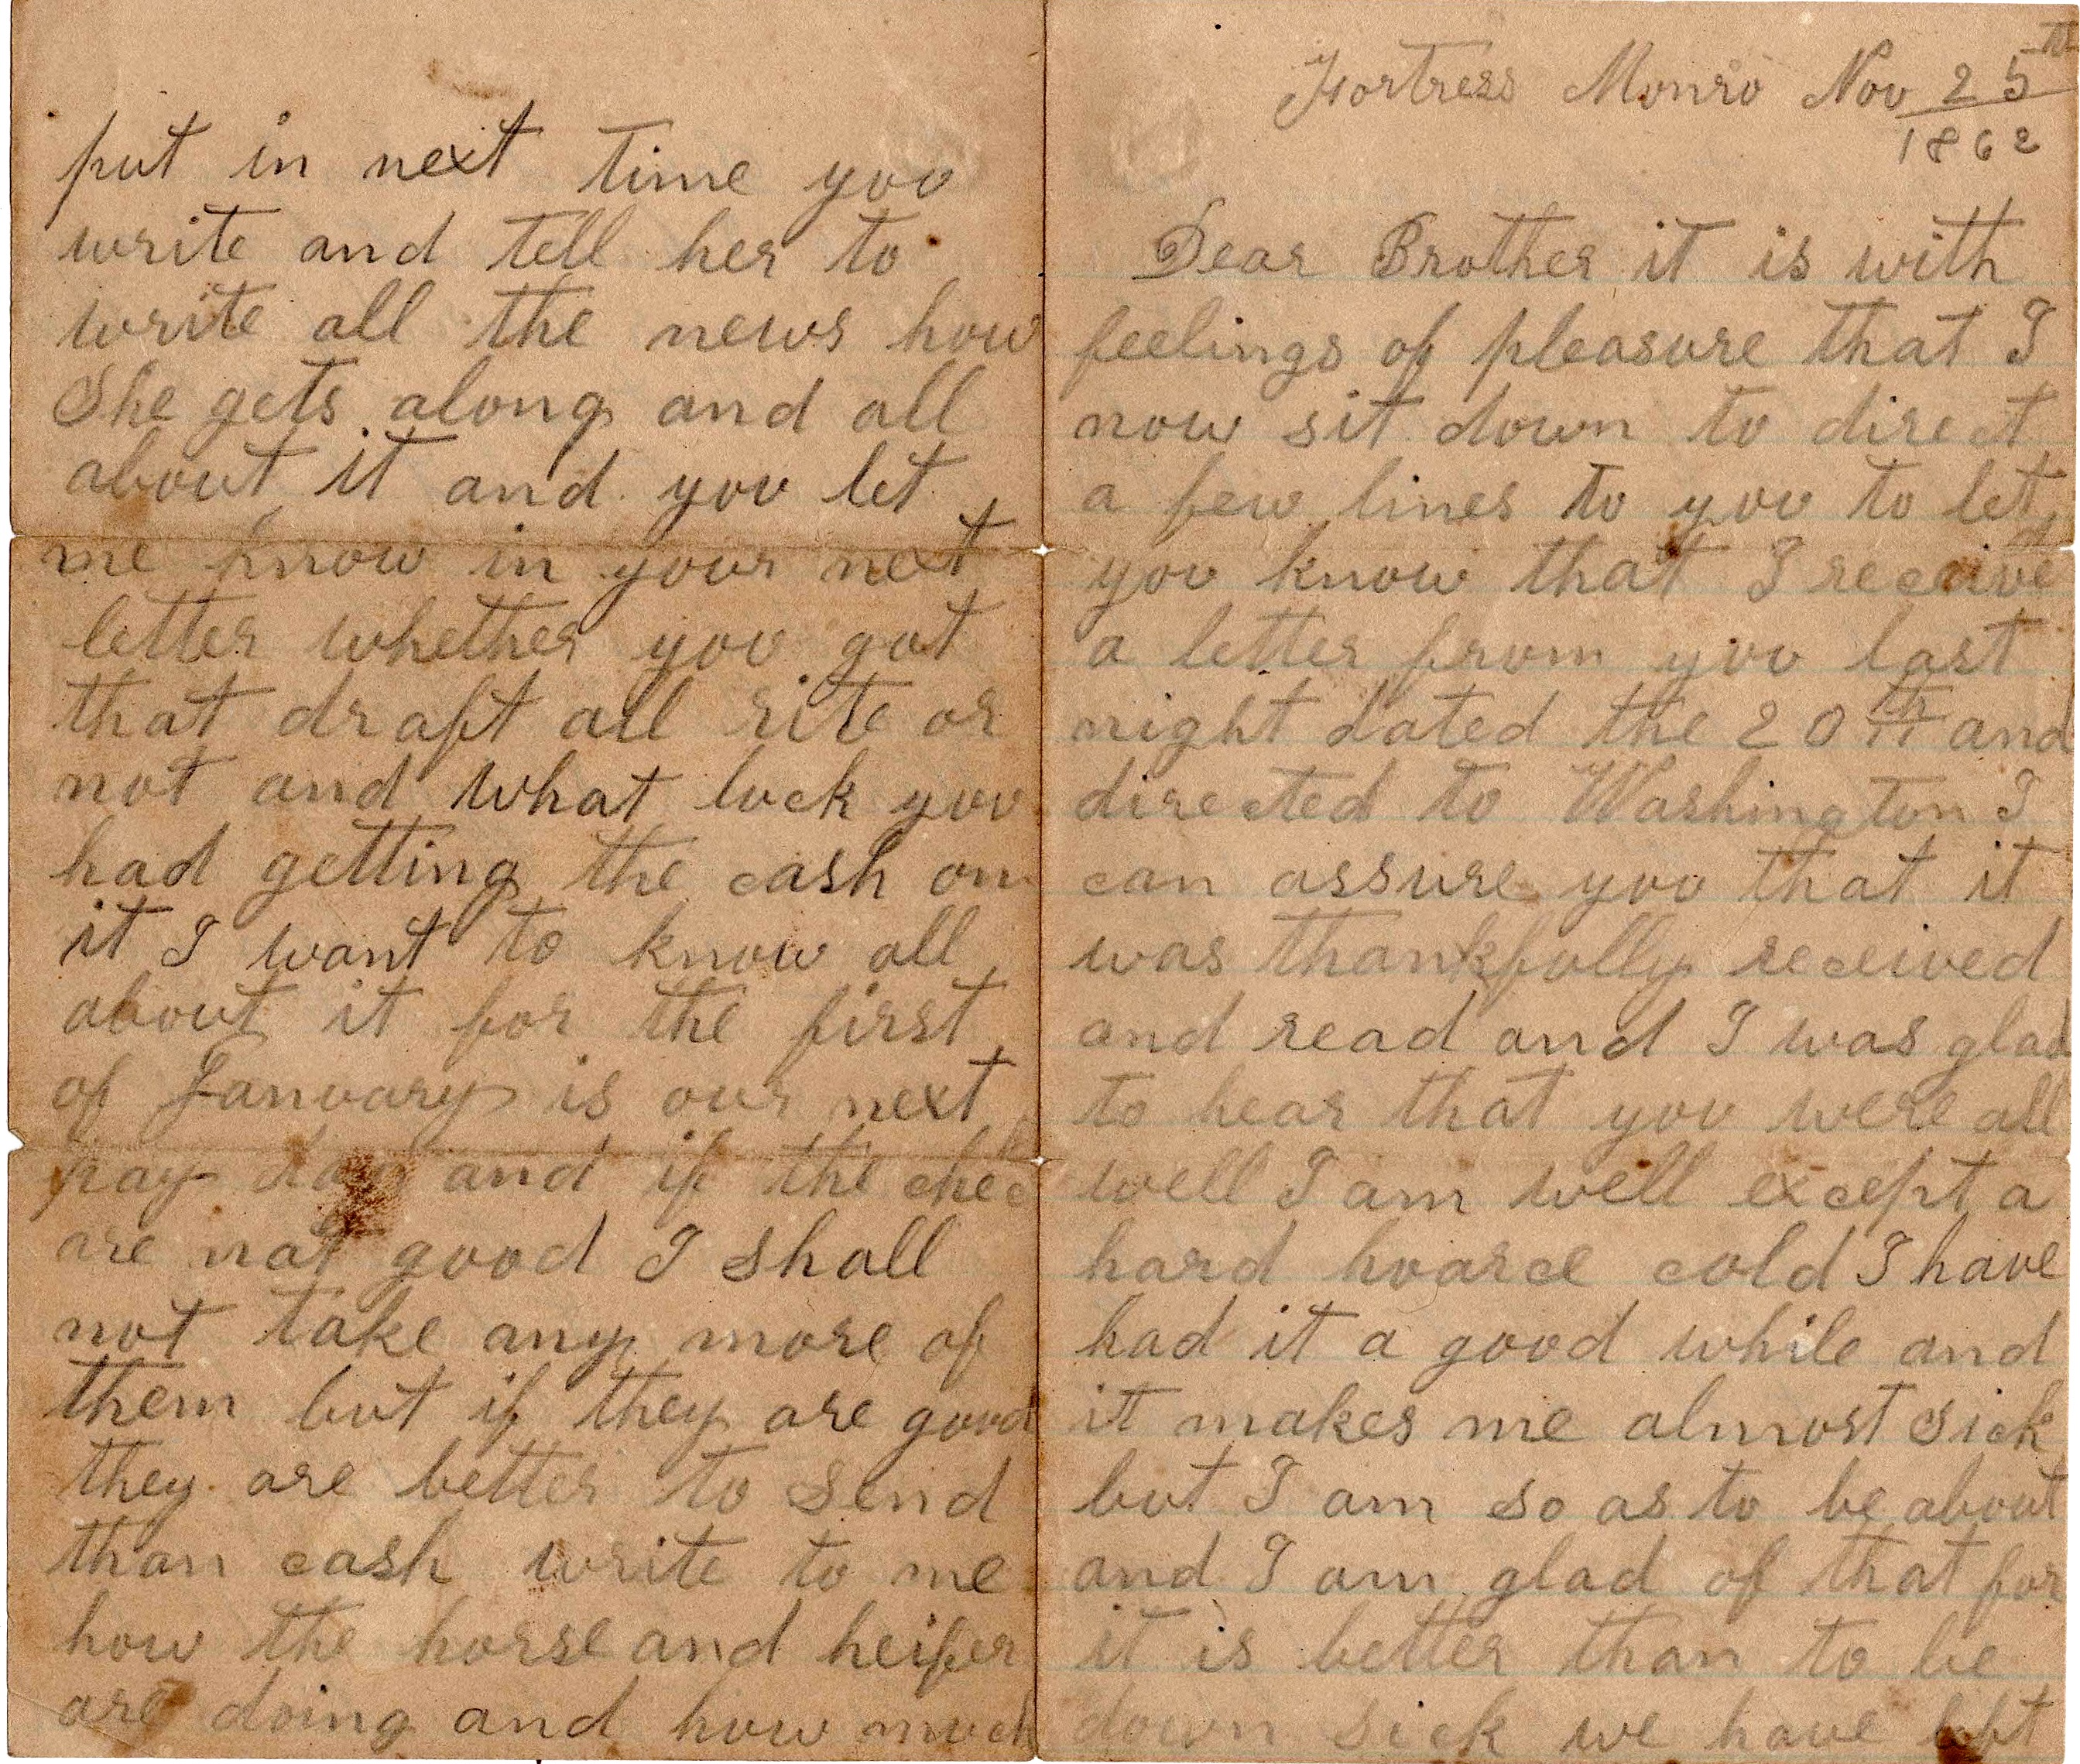 Fortress Monro Nov 25th
1862
Dear Brother it is with
feelings of pleasure that I
now sit down to direct
a few lines to you to let
you know that I received
a letter from you last
night dated the 20th and
directed to Washington I
can assure you that it
was thankfully received
and read and I was glad
to hear that you were all
well I am well except a
hard hoarce cold I have
had it a good while and
it makes me almost sick
but I am so as to be about
and I am glad of that for
it is better than to be
down sick we have left
put in next time you
write and tell her to
write all the news how
She gets along and all
about it and you let
me know in your next
letter whether you got
that draft all rite or
not and what luck you
had getting the cash on
it I want to know all
about it for the first
of January is our next
pay day and if the check
are not good I shall
not take any more of
them but if they are good
they are better to send
than cash write to me
how the horse and heifer
are doing and how much